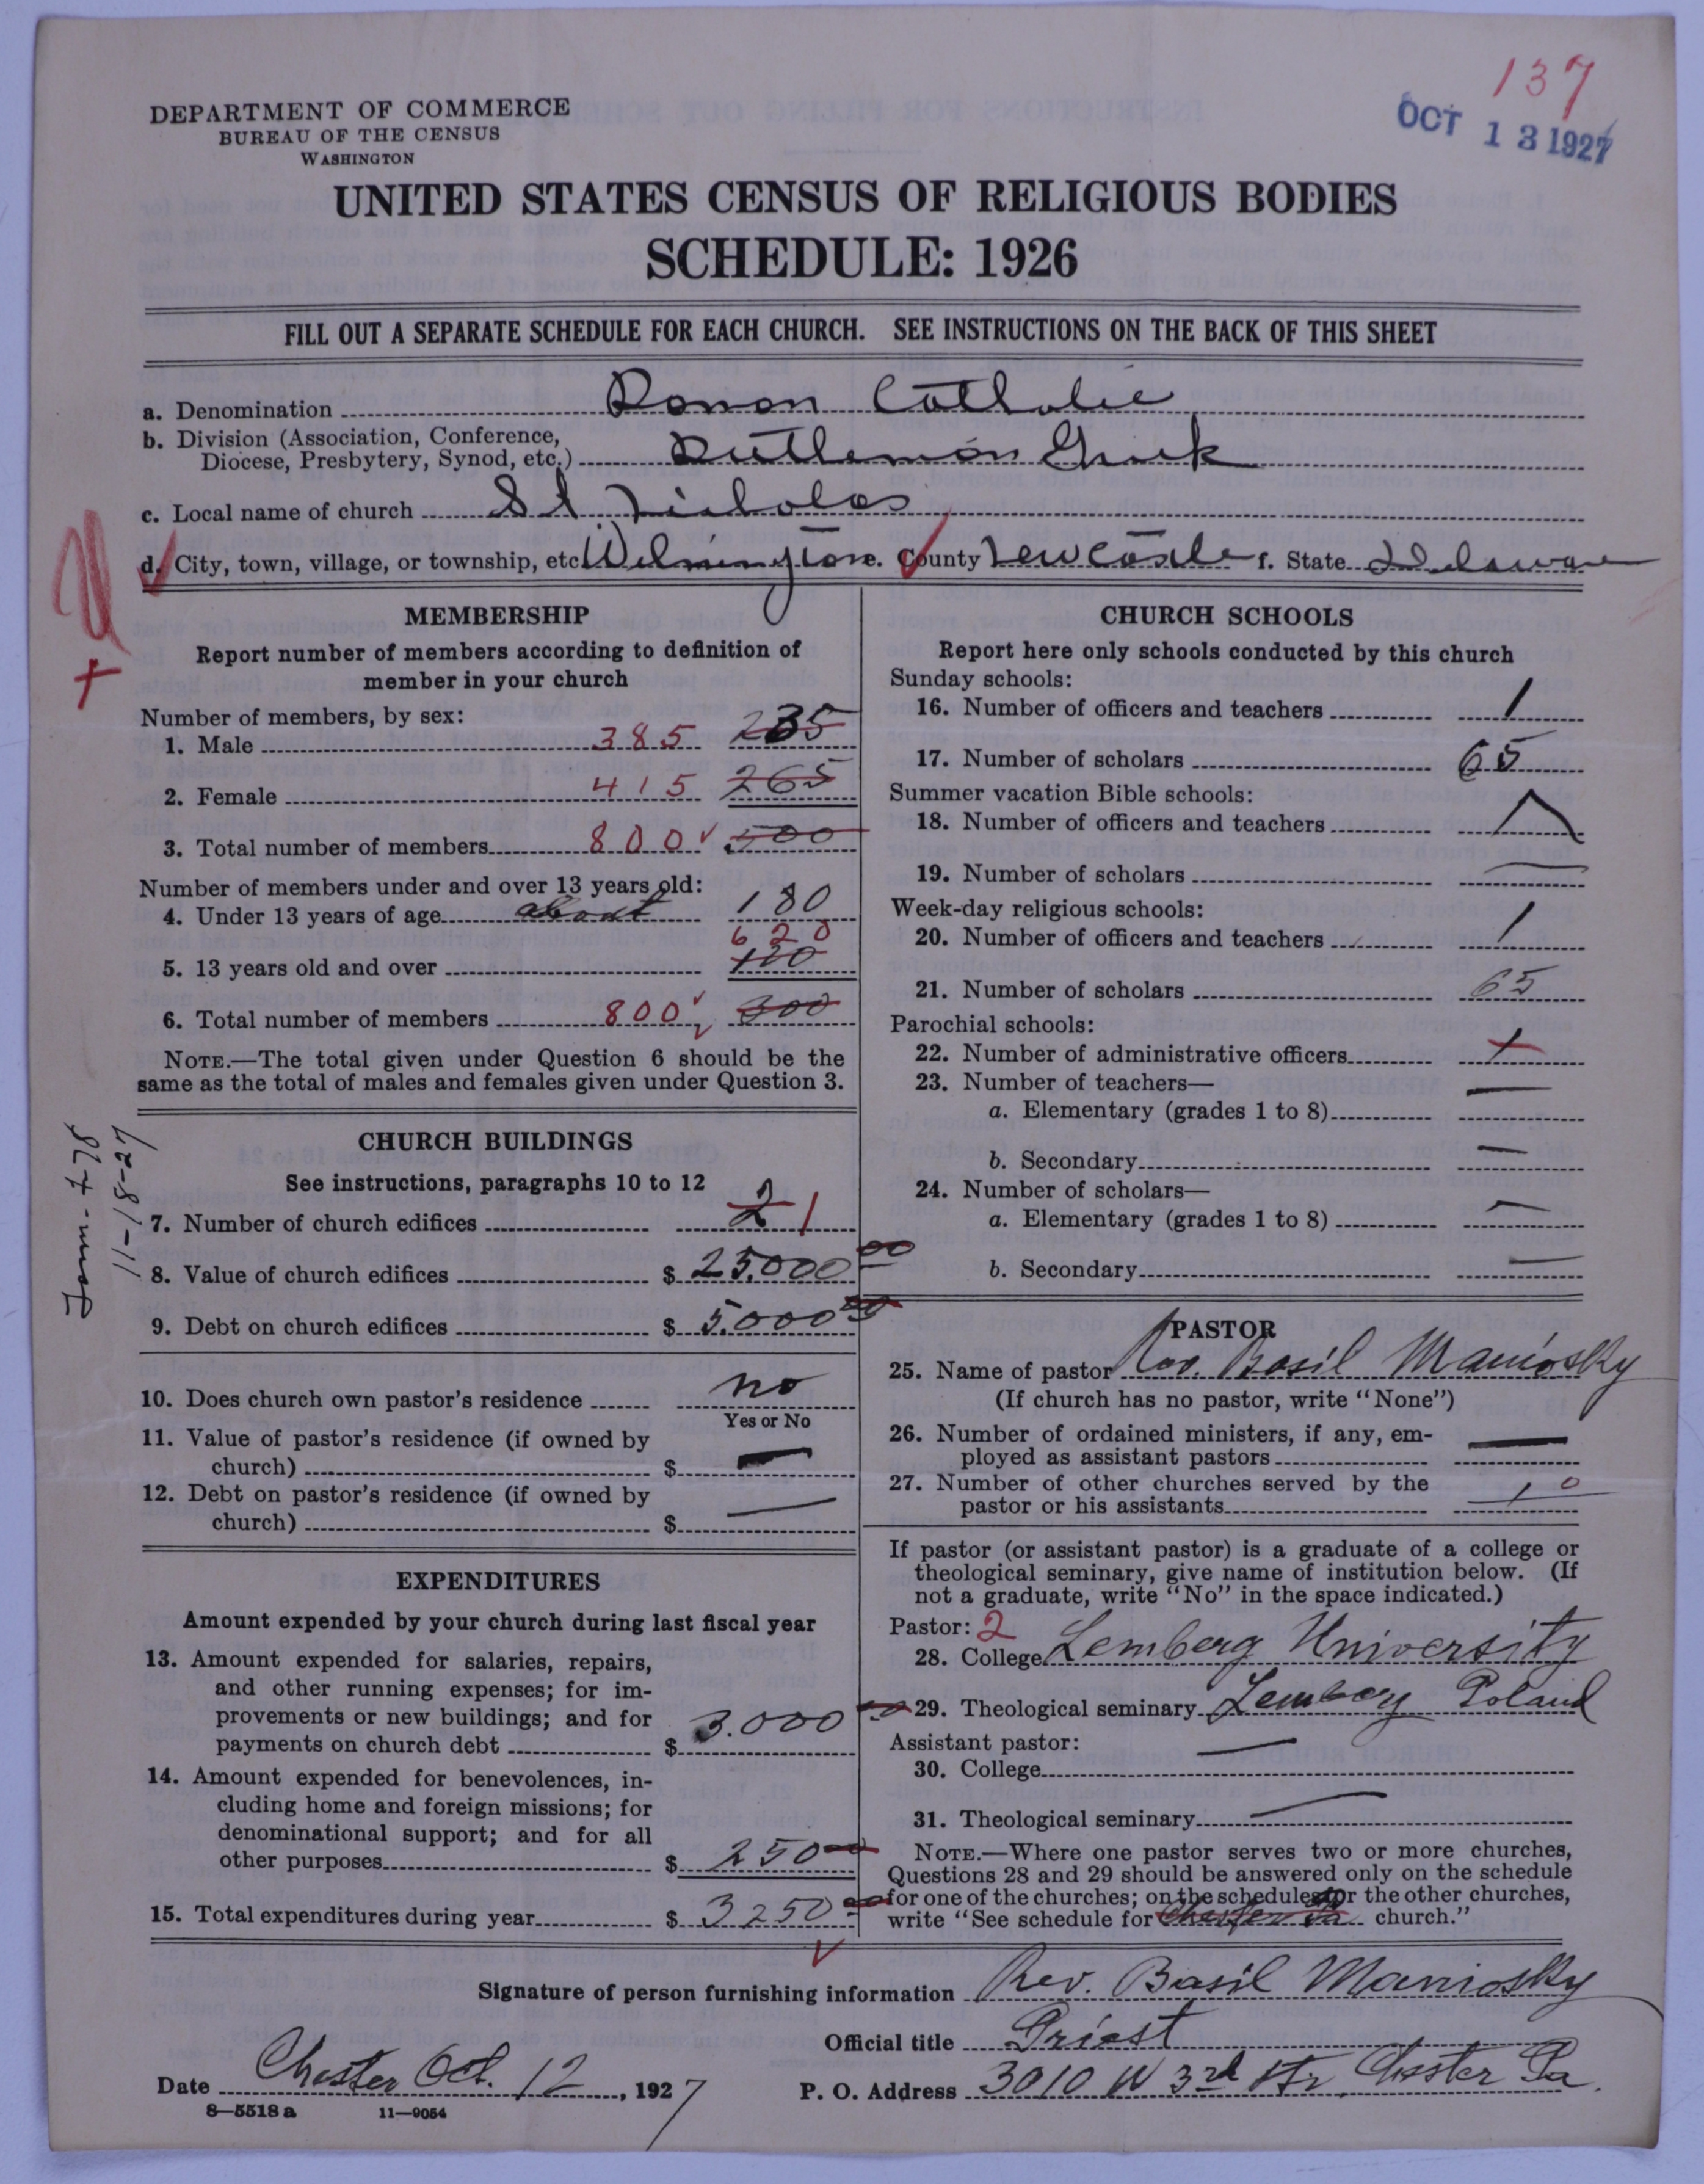 137
OCT 13 1927
DEPARTMENT OF COMMERCE
BUREAU OF THE CENSUS
WASHINGTON
UNITED STATES CENSUS OF RELIGIOUS BODIES
SCHEDULE: 1926
FILL OUT A SEPARATE SCHEDULE FOR EACH CHURCH. SEE INSTRUCTIONS ON THE BACK OF THIS SHEET
a. Denomination Roman Catholic
b. Division (Association, Conference,
Diocese, Presbytery, Synod, etc.) Ruthenian Greek
c. Local name of church St Nicholas
d. City, town, village, or township, etc. Wilmington e. County Newcastle f. State Delaware
MEMBERSHIP
Report number of members according to definition of
member in your church
Number of members, by sex:
1. Male 385 235
2. Female 415 265
3. Total number of members 800 500
Number of members under and over 13 years old:
4. Under 13 years of age about 180
620
5. 13 years old and over 120
6. Total number of members 800 300
NOTE.—The total given under Question 6 should be the
same as the total of males and females given under Question 3.
Form-7-78
11-18-27
CHURCH BUILDINGS
See instructions, paragraphs 10 to 12
7. Number of church edifices 2 1
8. Value of church edifices $ 25.000 00
9. Debt on church edifices $ 5.000 00
10. Does church own pastor's residence no
Yes or No
11. Value of pastor's residence (if owned by
church) $ —
12. Debt on pastor's residence (if owned by
church) $ —
EXPENDITURES
Amount expended by your church during last fiscal year
13. Amount expended for salaries, repairs,
and other running expenses; for im-
provements or new buildings; and for
payments on church debt $ 3.000 00
14. Amount expended for benevolences, in-
cluding home and foreign missions; for
denominational support; and for all
other purposes $ 250 00
15. Total expenditures during year $ 3250 00
CHURCH SCHOOLS
Report here only schools conducted by this church
Sunday schools:
16. Number of officers and teachers 1
17. Number of scholars 65
Summer vacation Bible schools:
18. Number of officers and teachers
19. Number of scholars —
Week-day religious schools:
20. Number of officers and teachers 1
21. Number of scholars 65
Parochial schools:
22. Number of administrative officers 1
23. Number of teachers—
a. Elementary (grades 1 to 8) —
b. Secondary —
24. Number of scholars—
a. Elementary (grades 1 to 8) —
b. Secondary —
PASTOR
25. Name of pastor Rev. Basil Maniosky
(If church has no pastor, write "None")
26. Number of ordained ministers, if any, em-
ployed as assistant pastors —
27. Number of other churches served by the
pastor or his assistants 1 0
If pastor (or assistant pastor) is a graduate of a college or
theological seminary, give name of institution below. (If
not a graduate, write "No" in the space indicated.)
Pastor: 2
28. College Lemberg University
29. Theological seminary Lemberg Poland
Assistant pastor:
30. College —
31. Theological seminary —
NOTE.—Where one pastor serves two or more churches,
Questions 28 and 29 should be answered only on the schedule
for one of the churches; on the schedules for the other churches,
write "See schedule for Chester Pa church."
Signature of person furnishing information Rev. Basil Maniosky
Official title Priest
Date Chester Oct. 12, 1927 P. O. Address 3010 W 3rd Str. Chester Pa.
8—5518 a 11—9054